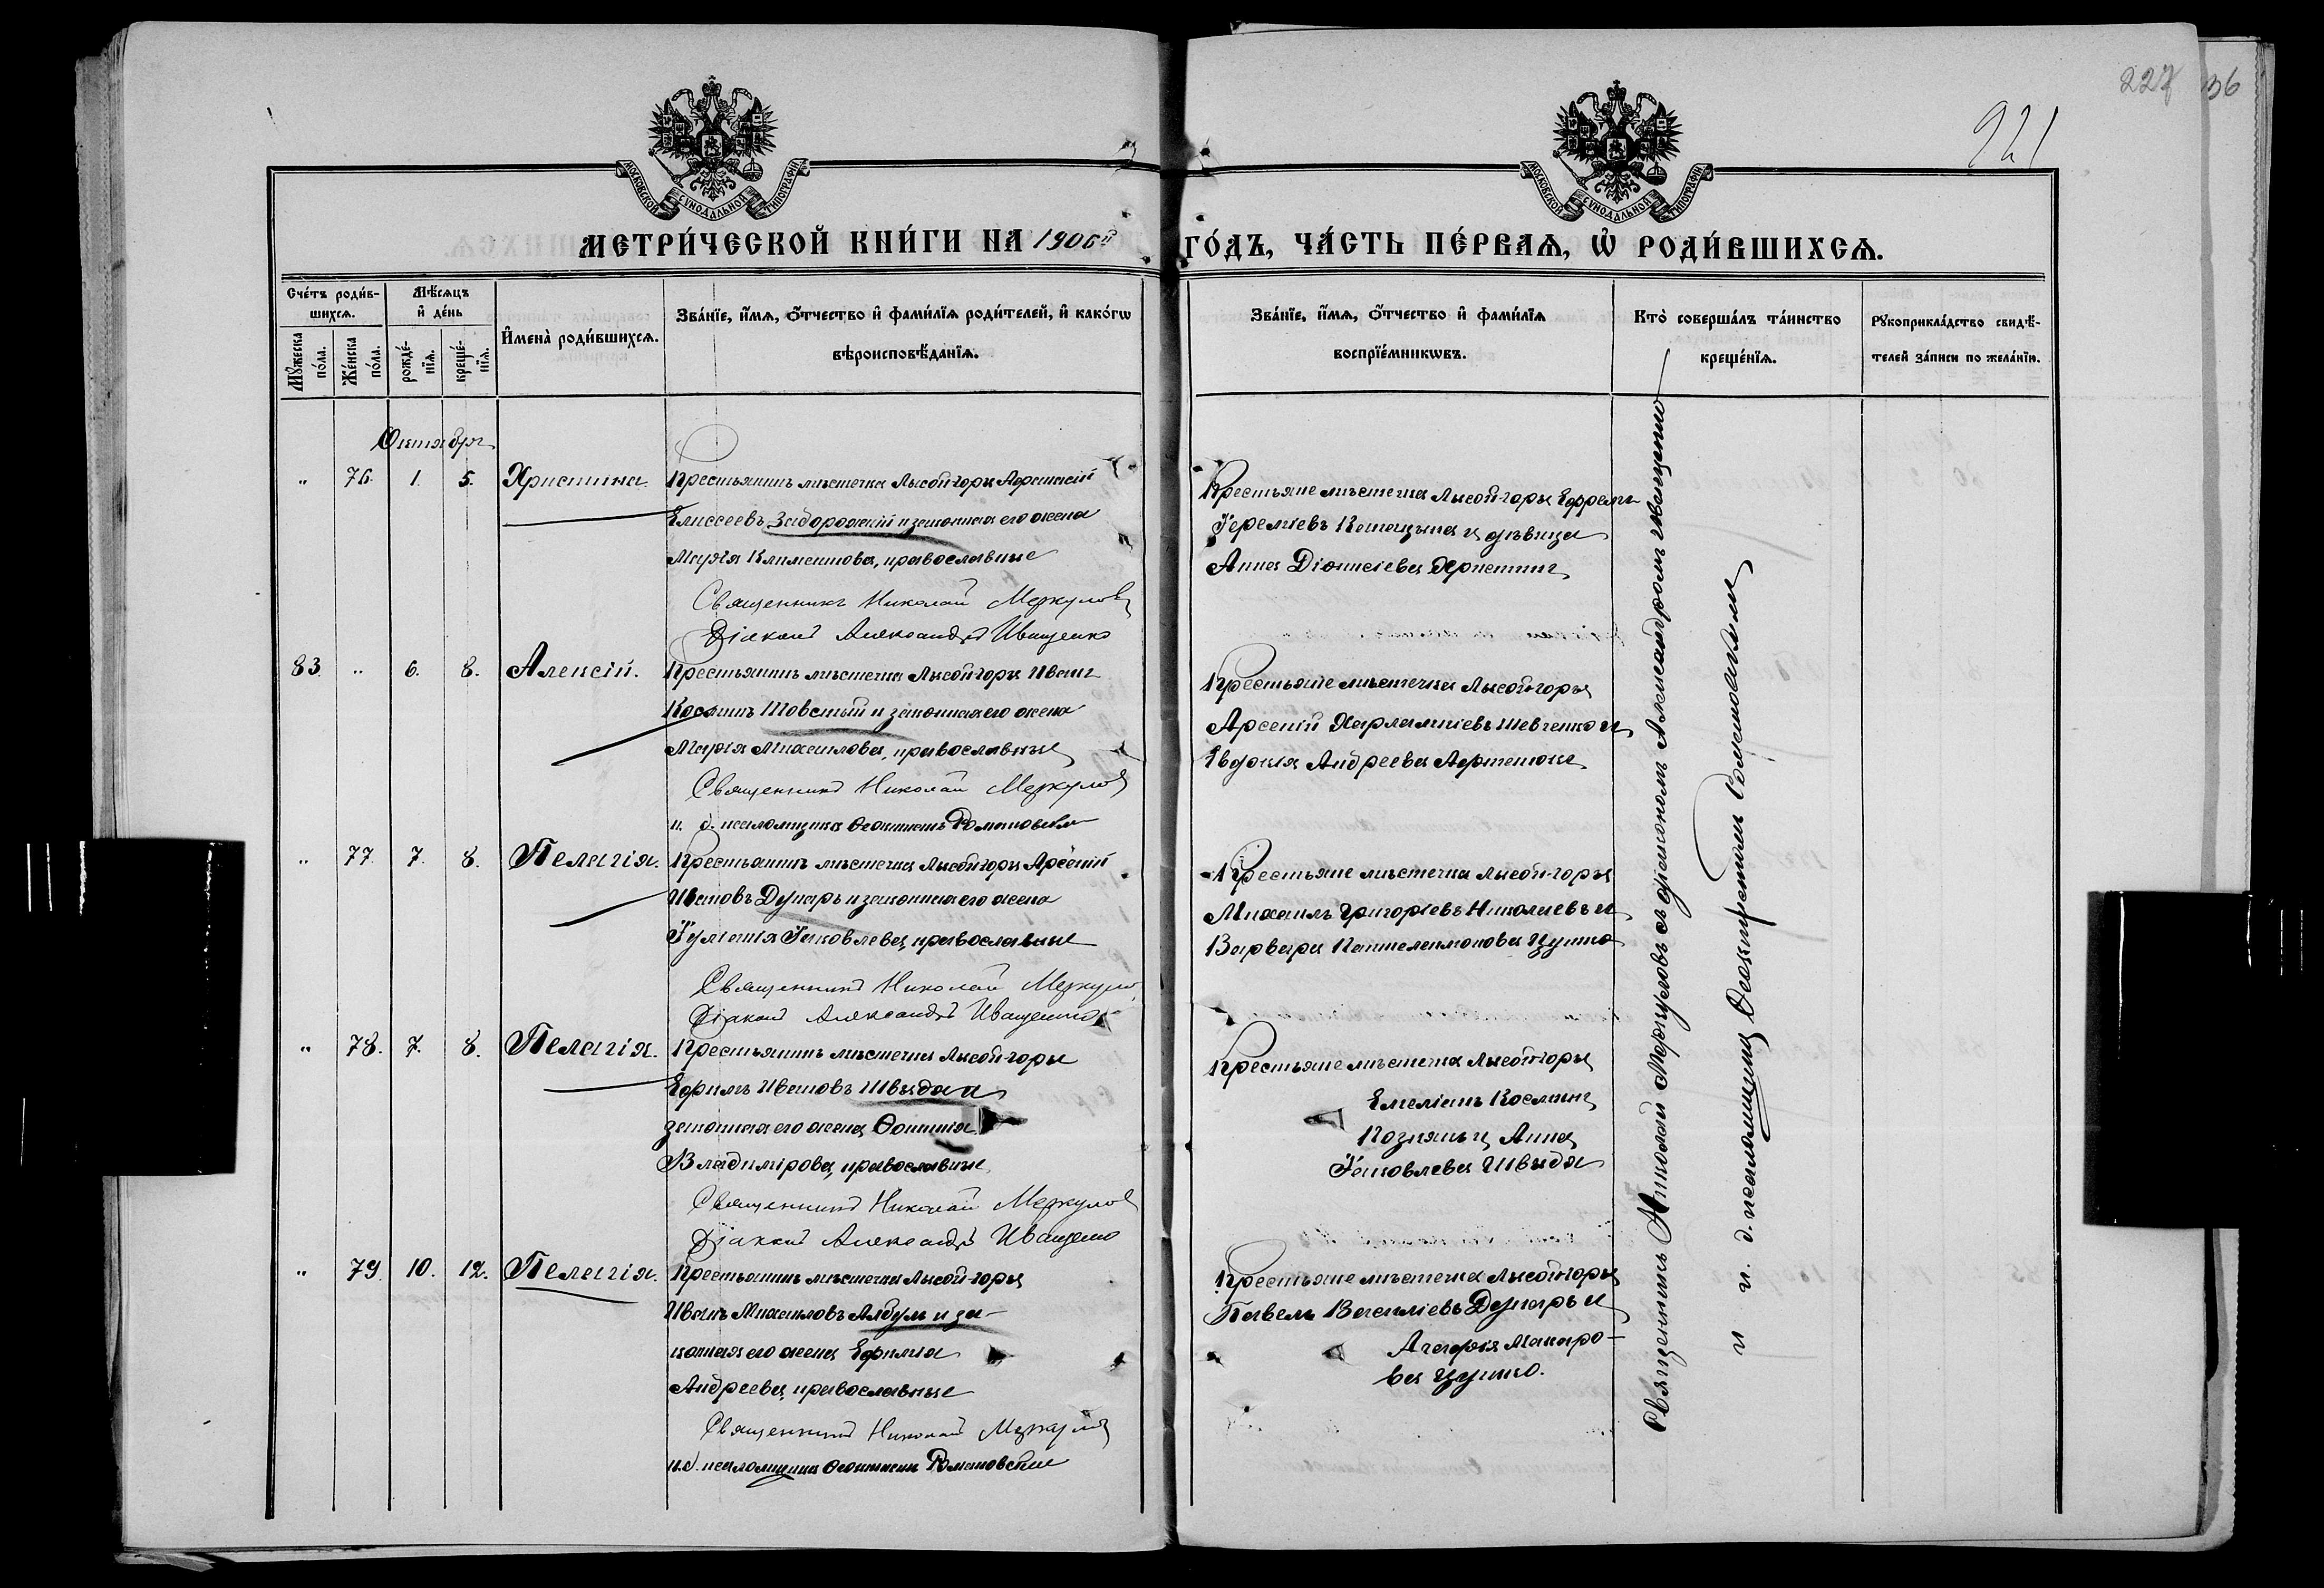 227 36
921
МОСКОВСКОЙ СУНОДАЛЬНОЙ ТИПОГРАФІИ
МОСКОВСКОЙ СУНОДАЛЬНОЙ ТИПОГРАФІИ
МЕТРИ́ЧЕСКОЙ КНИ́ГИ НА 1906й ГО́ДЪ, ЧА́СТЬ ПЕ́РВАЯ, Ѡ РОДИ́ВШИХСЯ.
Сче́тъ роди́в-
шихся.
Мѣ́сяцъ
и де́нь
Мꙋжеска по́ла.
Же́нска по́ла.
рожде́-
нїя.
креще́-
нїя.
Имена̀ роди́вшихся.
Зва́нїе, и́мя, о́тчество и фами́лїя роди́телей, и како́гѡ
вѣроисповѣ́данїя.
Зва́нїе, и́мя, о́тчество и фами́лїя
воспрїе́мникѡвъ.
Кто̀ соверша́лъ та́инство
креще́нїя.
Рꙋкоприкла́дство свидѣ́-
телей за́писи по жела́нїю.
Октябрь
" 76. 1. 5. Христина. Крестьянинъ мѣстечка Лысой-горы Афанасій
Елиссеевъ Забороженій и законная его жена
Марія Климентова, православные
Священникъ Николай Меркуловъ
Діаконъ Александръ Иващенко
Крестьяне мѣстечка Лысой-горы Ефремъ
Іереміевъ и дѣвица
Анна Діонисіева
83. " 6. 8. Алексій. Крестьянинъ мѣстечка Лысой-горы Иванъ
Косминъ Товстый и законная его жена
Марія Михаилова, православные
Священникъ Николай Меркуловъ
и. д. псаломщика Ѳеоктистъ Романовскій
Крестьяне мѣстечка Лысой-горы
Арсеній Харлампіевъ Шевченко и
Евдокія Андреева Артемюха
" 77. 7. 8. Пелагія. Крестьянинъ мѣстечка Лысой-горы Арсеній
Ивановъ Дударь и законная его жена
Іуліанія Іаковлева, православные
Священникъ Николай Меркуловъ
Діаконъ Александръ Иващенко
Крестьяне мѣстечка Лысой-горы
Михаилъ Григоріевъ Николаевъ и
Варвара Пантелеимонова Цупко
" 78. 7. 8. Пелагія. Крестьянинъ мѣстечка Лысой-горы
Ефимъ Ивановъ Швыдя и
законная его жена Фотинія
Владимірова, православные
Священникъ Николай Меркуловъ
Діаконъ Александръ Иващенко
Крестьяне мѣстечка Лысой-горы
Емеліанъ Косминъ
Познякъ и Анна
Іаковлева Швыдя
" 79. 10. 12. Пелагія. Крестьянинъ мѣстечка Лысой-горы
Иванъ Михаиловъ Албулъ и за-
конная его жена Ефимія
Андреева, православные
Священникъ Николай Меркуловъ
и. д. псаломщика Ѳеоктистъ Романовскій
Крестьяне мѣстечка Лысой-горы
Павелъ Василіевъ Дударь и
Агафія Макаро-
ва Цупко.
Священникъ Николай Меркуловъ съ діакономъ Александромъ Иващенко
и и. д. псаломщика Ѳеоктистомъ Романовскимъ